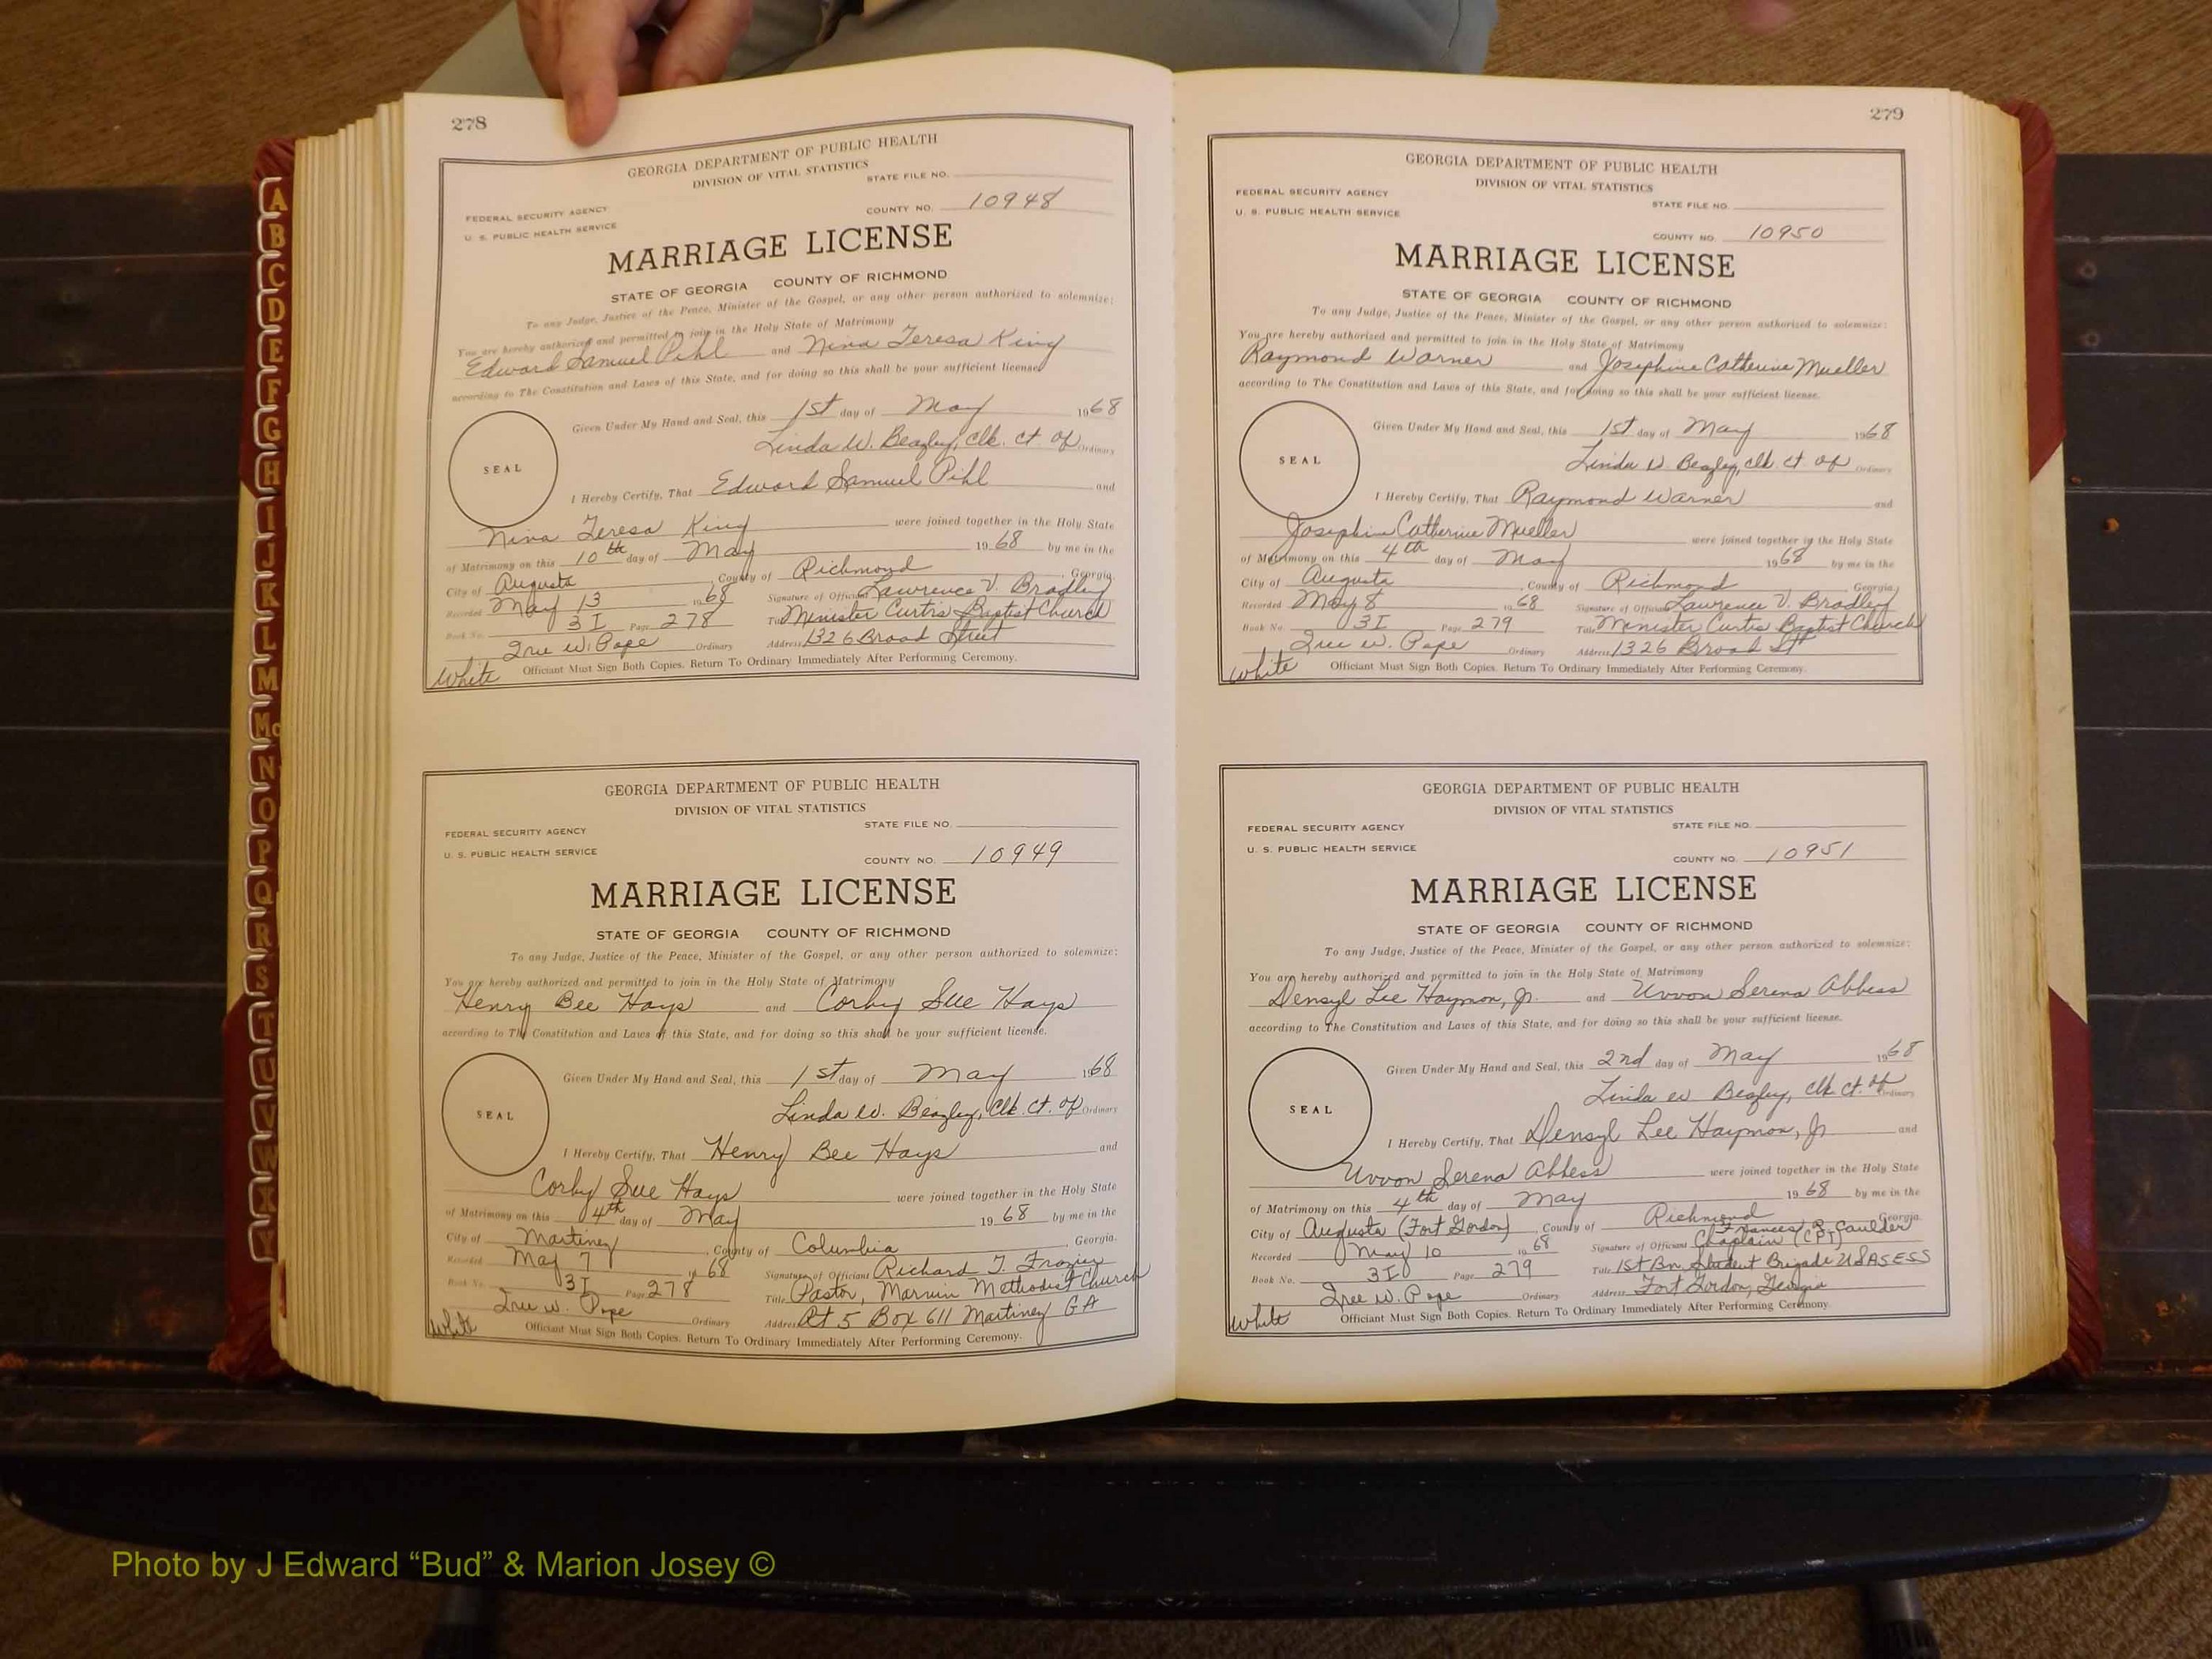 278
GEORGIA DEPARTMENT OF PUBLIC HEALTH
DIVISION OF VITAL STATISTICS
STATE FILE NO.
FEDERAL SECURITY AGENCY
U. S. PUBLIC HEALTH SERVICE
COUNTY NO. 10948
MARRIAGE LICENSE
STATE OF GEORGIA COUNTY OF RICHMOND
To any Judge, Justice of the Peace, Minister of the Gospel, or any other person authorized to solemnize:
You are hereby authorized and permitted to join in the Holy State of Matrimony
Edward Samuel Pihl and Nina Teresa King
according to The Constitution and Laws of this State, and for doing so this shall be your sufficient license
Given Under My Hand and Seal, this 1st day of May 1968
Linda W. Beazley, Clk. Ct. of Ordinary
SEAL
I Hereby Certify, That Edward Samuel Pihl and
Nina Teresa King were joined together in the Holy State
of Matrimony on this 10th day of May 1968 by me in the
City of Augusta, County of Richmond, Georgia.
Recorded May 13 1968 Signature of Official Lawrence V. Bradley
Book No. 3I Page 278 Title Minister Curtis Baptist Church
W. Pope Ordinary Address 1326 Broad Street
White Officiant Must Sign Both Copies. Return To Ordinary Immediately After Performing Ceremony.
GEORGIA DEPARTMENT OF PUBLIC HEALTH
DIVISION OF VITAL STATISTICS
STATE FILE NO.
FEDERAL SECURITY AGENCY
U. S. PUBLIC HEALTH SERVICE
COUNTY NO. 10949
MARRIAGE LICENSE
STATE OF GEORGIA COUNTY OF RICHMOND
To any Judge, Justice of the Peace, Minister of the Gospel, or any other person authorized to solemnize:
You are hereby authorized and permitted to join in the Holy State of Matrimony
Henry Bee Hays and Corby Sue Hays
according to The Constitution and Laws of this State, and for doing so this shall be your sufficient license.
Given Under My Hand and Seal, this 1st day of May 1968
Linda W. Beazley, Clk. Ct. of Ordinary
SEAL
I Hereby Certify, That Henry Bee Hays and
Corby Sue Hays were joined together in the Holy State
of Matrimony on this 4th day of May 1968 by me in the
City of Martinez, County of Columbia, Georgia.
Recorded May 7 1968 Signature of Official Richard T. Frazier
Book No. 3I Page 278 Title Pastor, Marvin Methodist Church
W. Pope Ordinary Address Rt 5 Box 611 Martinez GA
White Officiant Must Sign Both Copies. Return To Ordinary Immediately After Performing Ceremony.
279
GEORGIA DEPARTMENT OF PUBLIC HEALTH
DIVISION OF VITAL STATISTICS
FEDERAL SECURITY AGENCY
STATE FILE NO.
U. S. PUBLIC HEALTH SERVICE
COUNTY NO. 10950
MARRIAGE LICENSE
STATE OF GEORGIA COUNTY OF RICHMOND
To any Judge, Justice of the Peace, Minister of the Gospel, or any other person authorized to solemnize:
You are hereby authorized and permitted to join in the Holy State of Matrimony
Raymond Warner and Josephine Catherine Mueller
according to The Constitution and Laws of this State, and for doing so this shall be your sufficient license.
Given Under My Hand and Seal, this 1st day of May 1968
Linda W. Beazley, Clk. Ct. of Ordinary
SEAL
I Hereby Certify, That Raymond Warner and
Josephine Catherine Mueller were joined together in the Holy State
of Matrimony on this 4th day of May 1968 by me in the
City of Augusta, County of Richmond, Georgia.
Recorded May 8 1968 Signature of Official Lawrence V. Bradley
Book No. 3I Page 279 Title Minister Curtis Baptist Church
W. Pope Ordinary Address 1326 Broad St
White Officiant Must Sign Both Copies. Return To Ordinary Immediately After Performing Ceremony.
GEORGIA DEPARTMENT OF PUBLIC HEALTH
DIVISION OF VITAL STATISTICS
FEDERAL SECURITY AGENCY
STATE FILE NO.
U. S. PUBLIC HEALTH SERVICE
COUNTY NO. 10951
MARRIAGE LICENSE
STATE OF GEORGIA COUNTY OF RICHMOND
To any Judge, Justice of the Peace, Minister of the Gospel, or any other person authorized to solemnize:
You are hereby authorized and permitted to join in the Holy State of Matrimony
Densyl Lee Haymon, Jr. and Uvvon Serena Abbess
according to The Constitution and Laws of this State, and for doing so this shall be your sufficient license.
Given Under My Hand and Seal, this 2nd day of May 1968
Linda W Beazley, Clk. Ct. of Ordinary
SEAL
I Hereby Certify, That Densyl Lee Haymon, Jr and
Uvvon Serena Abbess were joined together in the Holy State
of Matrimony on this 4th day of May 1968 by me in the
City of Augusta (Fort Gordon), County of Richmond Georgia.
Frances R. Caulder
Recorded May 10 1968 Signature of Official Chaplain (CPT)
Book No. 3I Page 279 Title 1st Bn, Student Brigade USASESS
W. Pope Ordinary Address Fort Gordon, Georgia
White Officiant Must Sign Both Copies. Return To Ordinary Immediately After Performing Ceremony.
A
B
C
D
E
F
G
H
I
J
K
L
M
Mc
N
O
P
Q
R
S
T
U
V
W
X
Y
Photo by J Edward “Bud” & Marion Josey ©